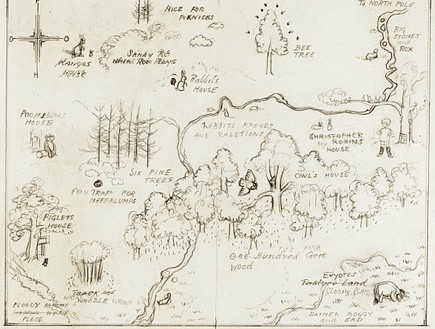 TO NORTH POLE
NICE FOR
PICKNICKS
BIG
STONES
AND
ROX
BEE
TREE
SANDY PIT
WHERE ROO PLAYS
KANGAS
HOUSE
Rabbits
HOUSE
POOH BEARS
HOUSE
RABBITS FRIENDS
AND RALETIONS
CHRISTOPHER
ROBINS
HOUSE
SIX PINE
TREES
OWLS HOUSE
POOH TRAP FOR
HEFFALUMPS
PIGLETS
HOUSE
One Hundred Acre
Wood
EEYORES
Gloomy Place
FLOODY
PLACE
WOOZLE
RATHER BOGGY
AND SAD